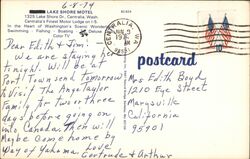 6-8-79
LAKE SHORE MOTEL
1325 Lake Shore Dr. Centralia, Wash.
Centralia's Finest Motel Lodge on I-5
In the Heart of Washington's Scenic Wonders
Swimming Fishing Boating Deluxe
Color TV
CENTRALIA, WA
JUN 9
1979
98531
postcard
Dear Edith & Jim:
We are staying here
tonight. Will be in
Port Townsend tomorrow
to visit the Angel Taylor
Family for two or three
days before going on
into Canada. Then will
Maybe come home by
Way of Yakima. Love
Gertrude & Arthur
Mrs Edith Boyd
1210 Eye Street
Marysville
California
95901